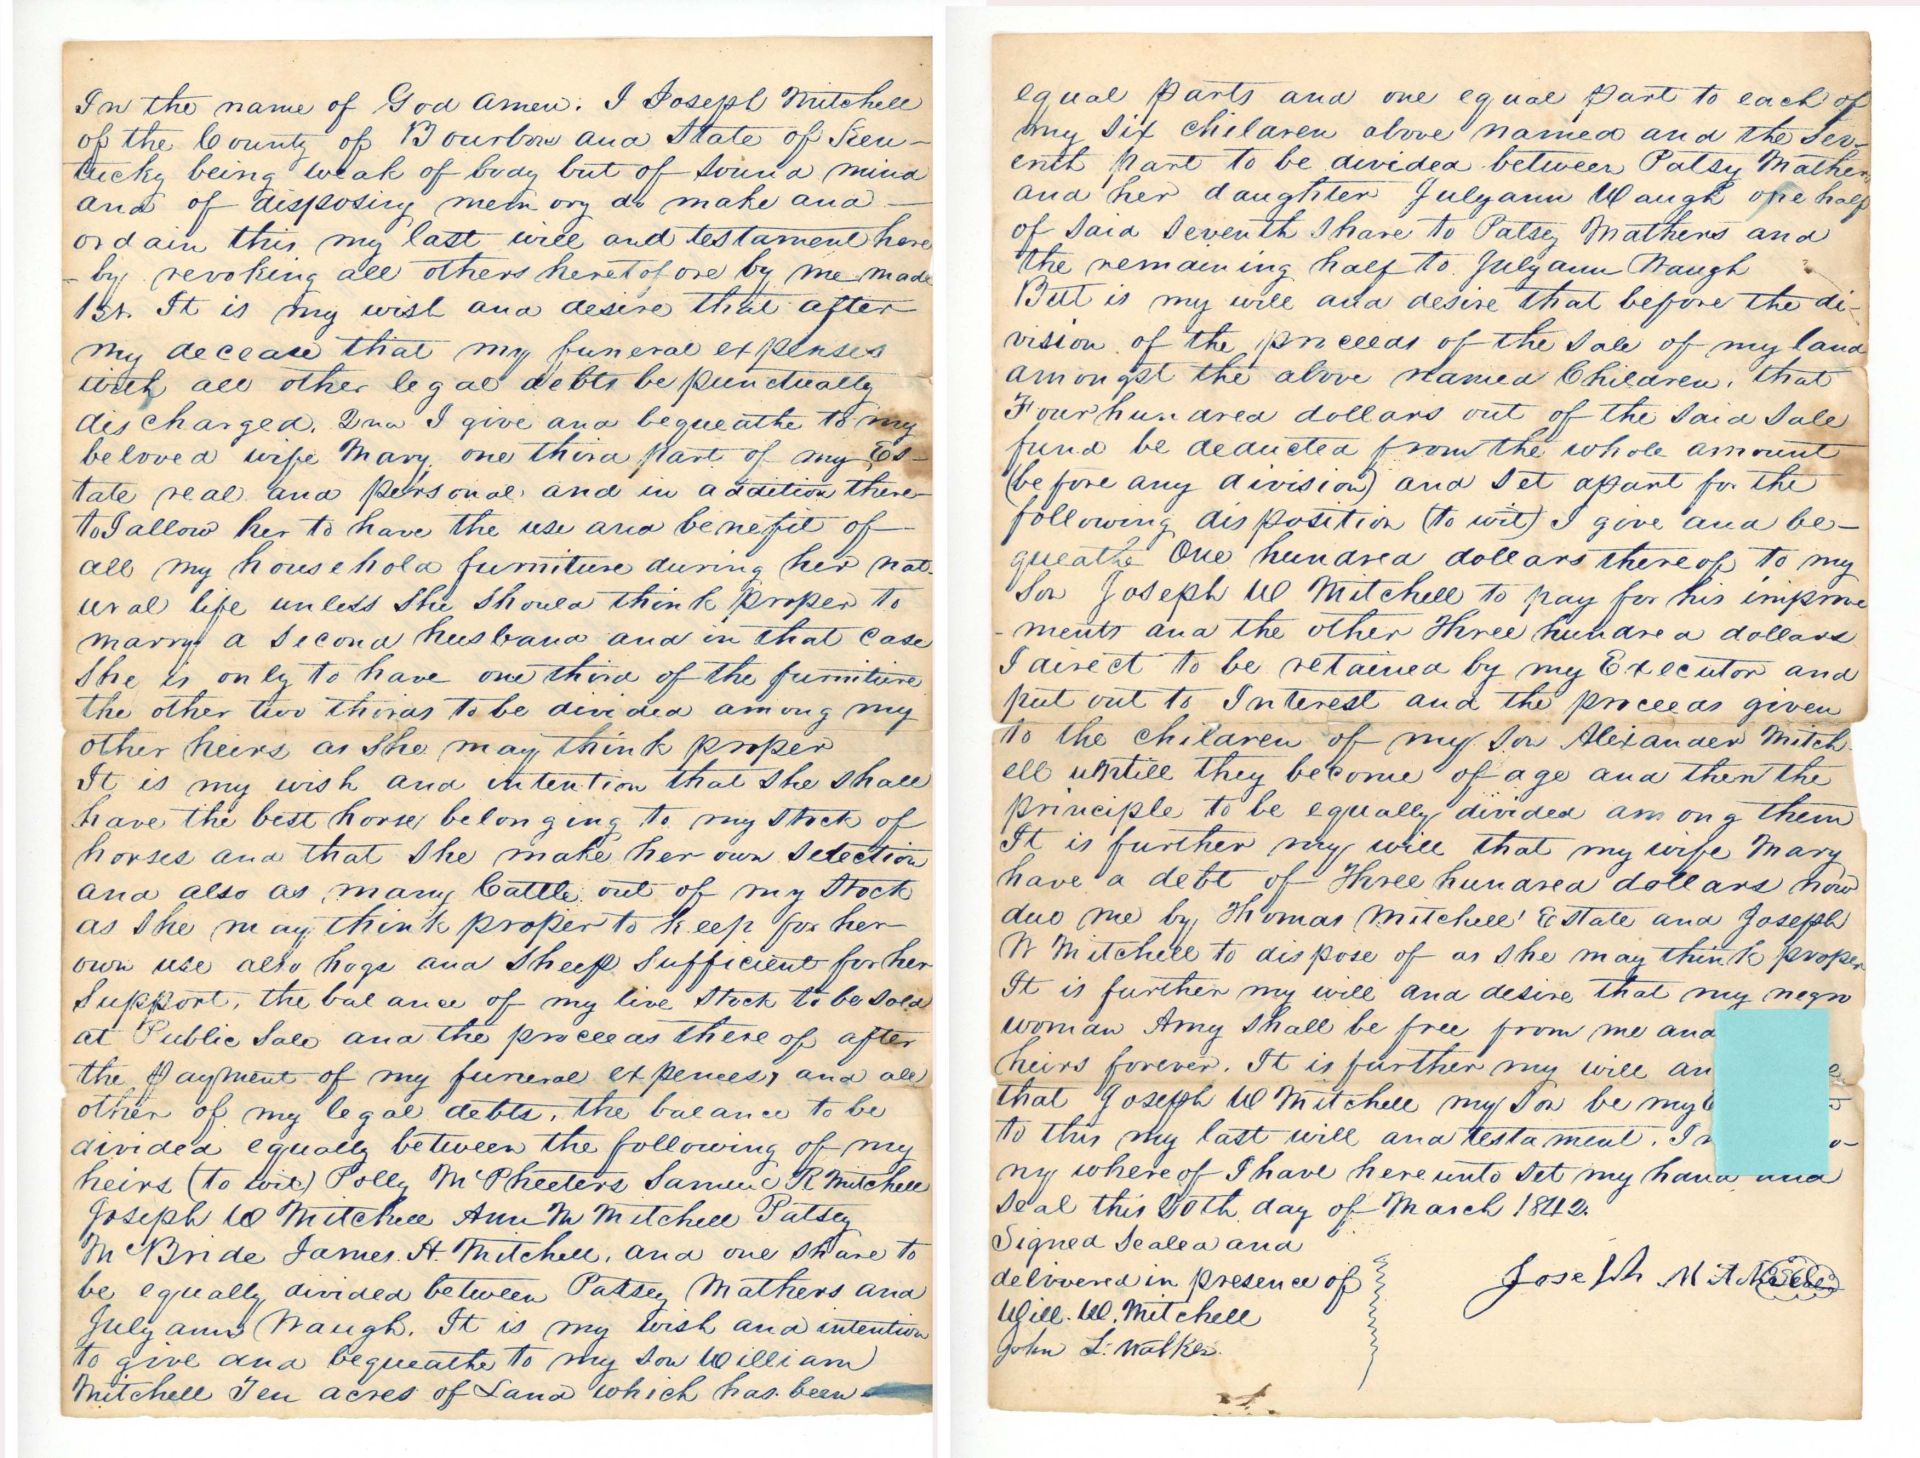 In the name of God amen. I Joseph Mitchell
of the County of Bourbon and State of Ken-
tucky being weak of body but of sound mind
and of disposing memory do make and -
ordain this my last will and testament here
- by revoking all others heretofore by me made
1st. It is my wish and desire that after
my decease that my funeral expenses
with all other legal debts be punctually
discharged. 2nd I give and bequeathe to my
beloved wife Mary one third part of my Es-
tate real and personal and in addition there-
to I allow her to have the use and benefit of
all my household furniture during her nat-
ural life unless She Should think proper to
marry a second husband and in that case
She is only to have one third of the furniture
the other two thirds to be divided among my
other heirs as She may think proper
It is my wish and intention that She shall
have the best horse belonging to my stock of
horses and that She make her own Selection
and also as many Cattle out of my Stock
as She may think proper to keep for her
own use also hogs and Sheep Sufficient for her
Support, the balance of my live stock to be sold
at Public Sale and the proceeds there of after
the payment of my funeral expences, and all
other of my legal debts, the balance to be
divided equally between the following of my
heirs (to wit) Polly McPheeters Samuel R Mitchell
Joseph W Mitchell Ann M Mitchell Patsey
McBride James H Mitchell, and one Share to
be equally divided between Patsey Mathers and
July ann Waugh. It is my wish and intention
to give and bequeathe to my son William
Mitchell Ten acres of Land which has been
equal parts and one equal part to each of
my six children above named and the Sev-
enth part to be divided between Patsy Mathers
and her daughter Julyann Waugh one half
of said Seventh Share to Patsey Mathers and
the remaining half to July ann Waugh
But is my will and desire that before the di-
vision of the proceeds of the Sale of my land
amongst the above named Children, that
Four hundred dollars out of the Said Sale
fund be deducted from the whole amount
(before any division) and Set apart for the
following disposition (to wit) I give and be-
queathe One hundred dollars thereof to my
Son Joseph W Mitchell to pay for his improve
- ments and the other Three hundred dollars
I direct to be retained by my Executor and
put out to Interest and the proceeds given
to the children of my Son Alexander Mitch
ell untill they become of age and then the
principle to be equally divided among them
It is further my will that my wife Mary
have a debt of Three hundred dollars now
due me by Thomas Mitchell' Estate and Joseph
W Mitchell to dispose of as She may think proper
It is further my will and desire that my negro
woman Amy Shall be free from me and
heirs forever. It is further my will an
that Joseph W Mitchell my Son be my
to this my last will and testament. In
ny whereof I have here unto Set my hand and
Seal this 20th day of March 1842.
Signed Sealed and
delivered in presence of
Joseph Mitchell Seal
Will. W. Mitchell
John L. Walker.